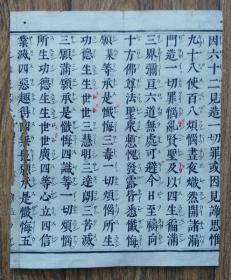 因六十二見造一切罪或因見諦思惟
九十八使百八煩惱晝夜熾然開諸漏
門造一切罪惱亂賢聖及以四生徧滿
三界彌亘六道無處可避今日至禱向
十方佛尊法聖衆慚愧發露皆悉懺悔
願某等承是懺悔三毒一切煩惱所生
功德生生世世三慧明三達朗三苦滅
三願滿願承是懺悔四識等一切煩惱
所生功德生生世世廣四等心立四信
業滅四惡趣得四無畏願承是懺悔五